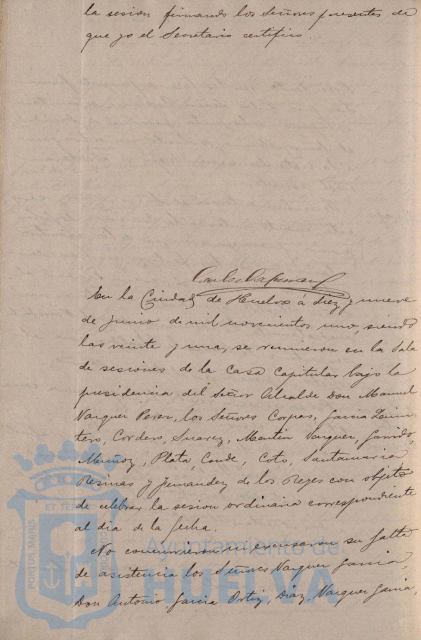 la sesion firmando los Señores presentes de
que yo el Secretario certifico.
En la Ciudad de Huelva á diez y nueve
de Junio de mil novecientos uno, siendo
las veinte y una, se reunieron en la Sala
de sesiones de la Casa Capitular bajo la
presidencia del Señor Alcalde Don Manuel
Vazquez Perez, los Señores Corpas, Garcia
Cordero, Suarez, Martin Vazquez, Garrido,
Muñoz, Plata, Conde, Coto, Santamaria
Resinas y Fernandez de los Reyes con objeto
de celebrar la sesion ordinaria correspondiente
al dia de la fecha.
No concurrieron ni excusaron su falta
de asistencia los Señores Vazquez Garcia,
Don Antonio Garcia Ortiz, Diaz, Vazquez Garcia,
Ayuntamiento de
HUELVA
PORTUS MARIS
ET TERRAE